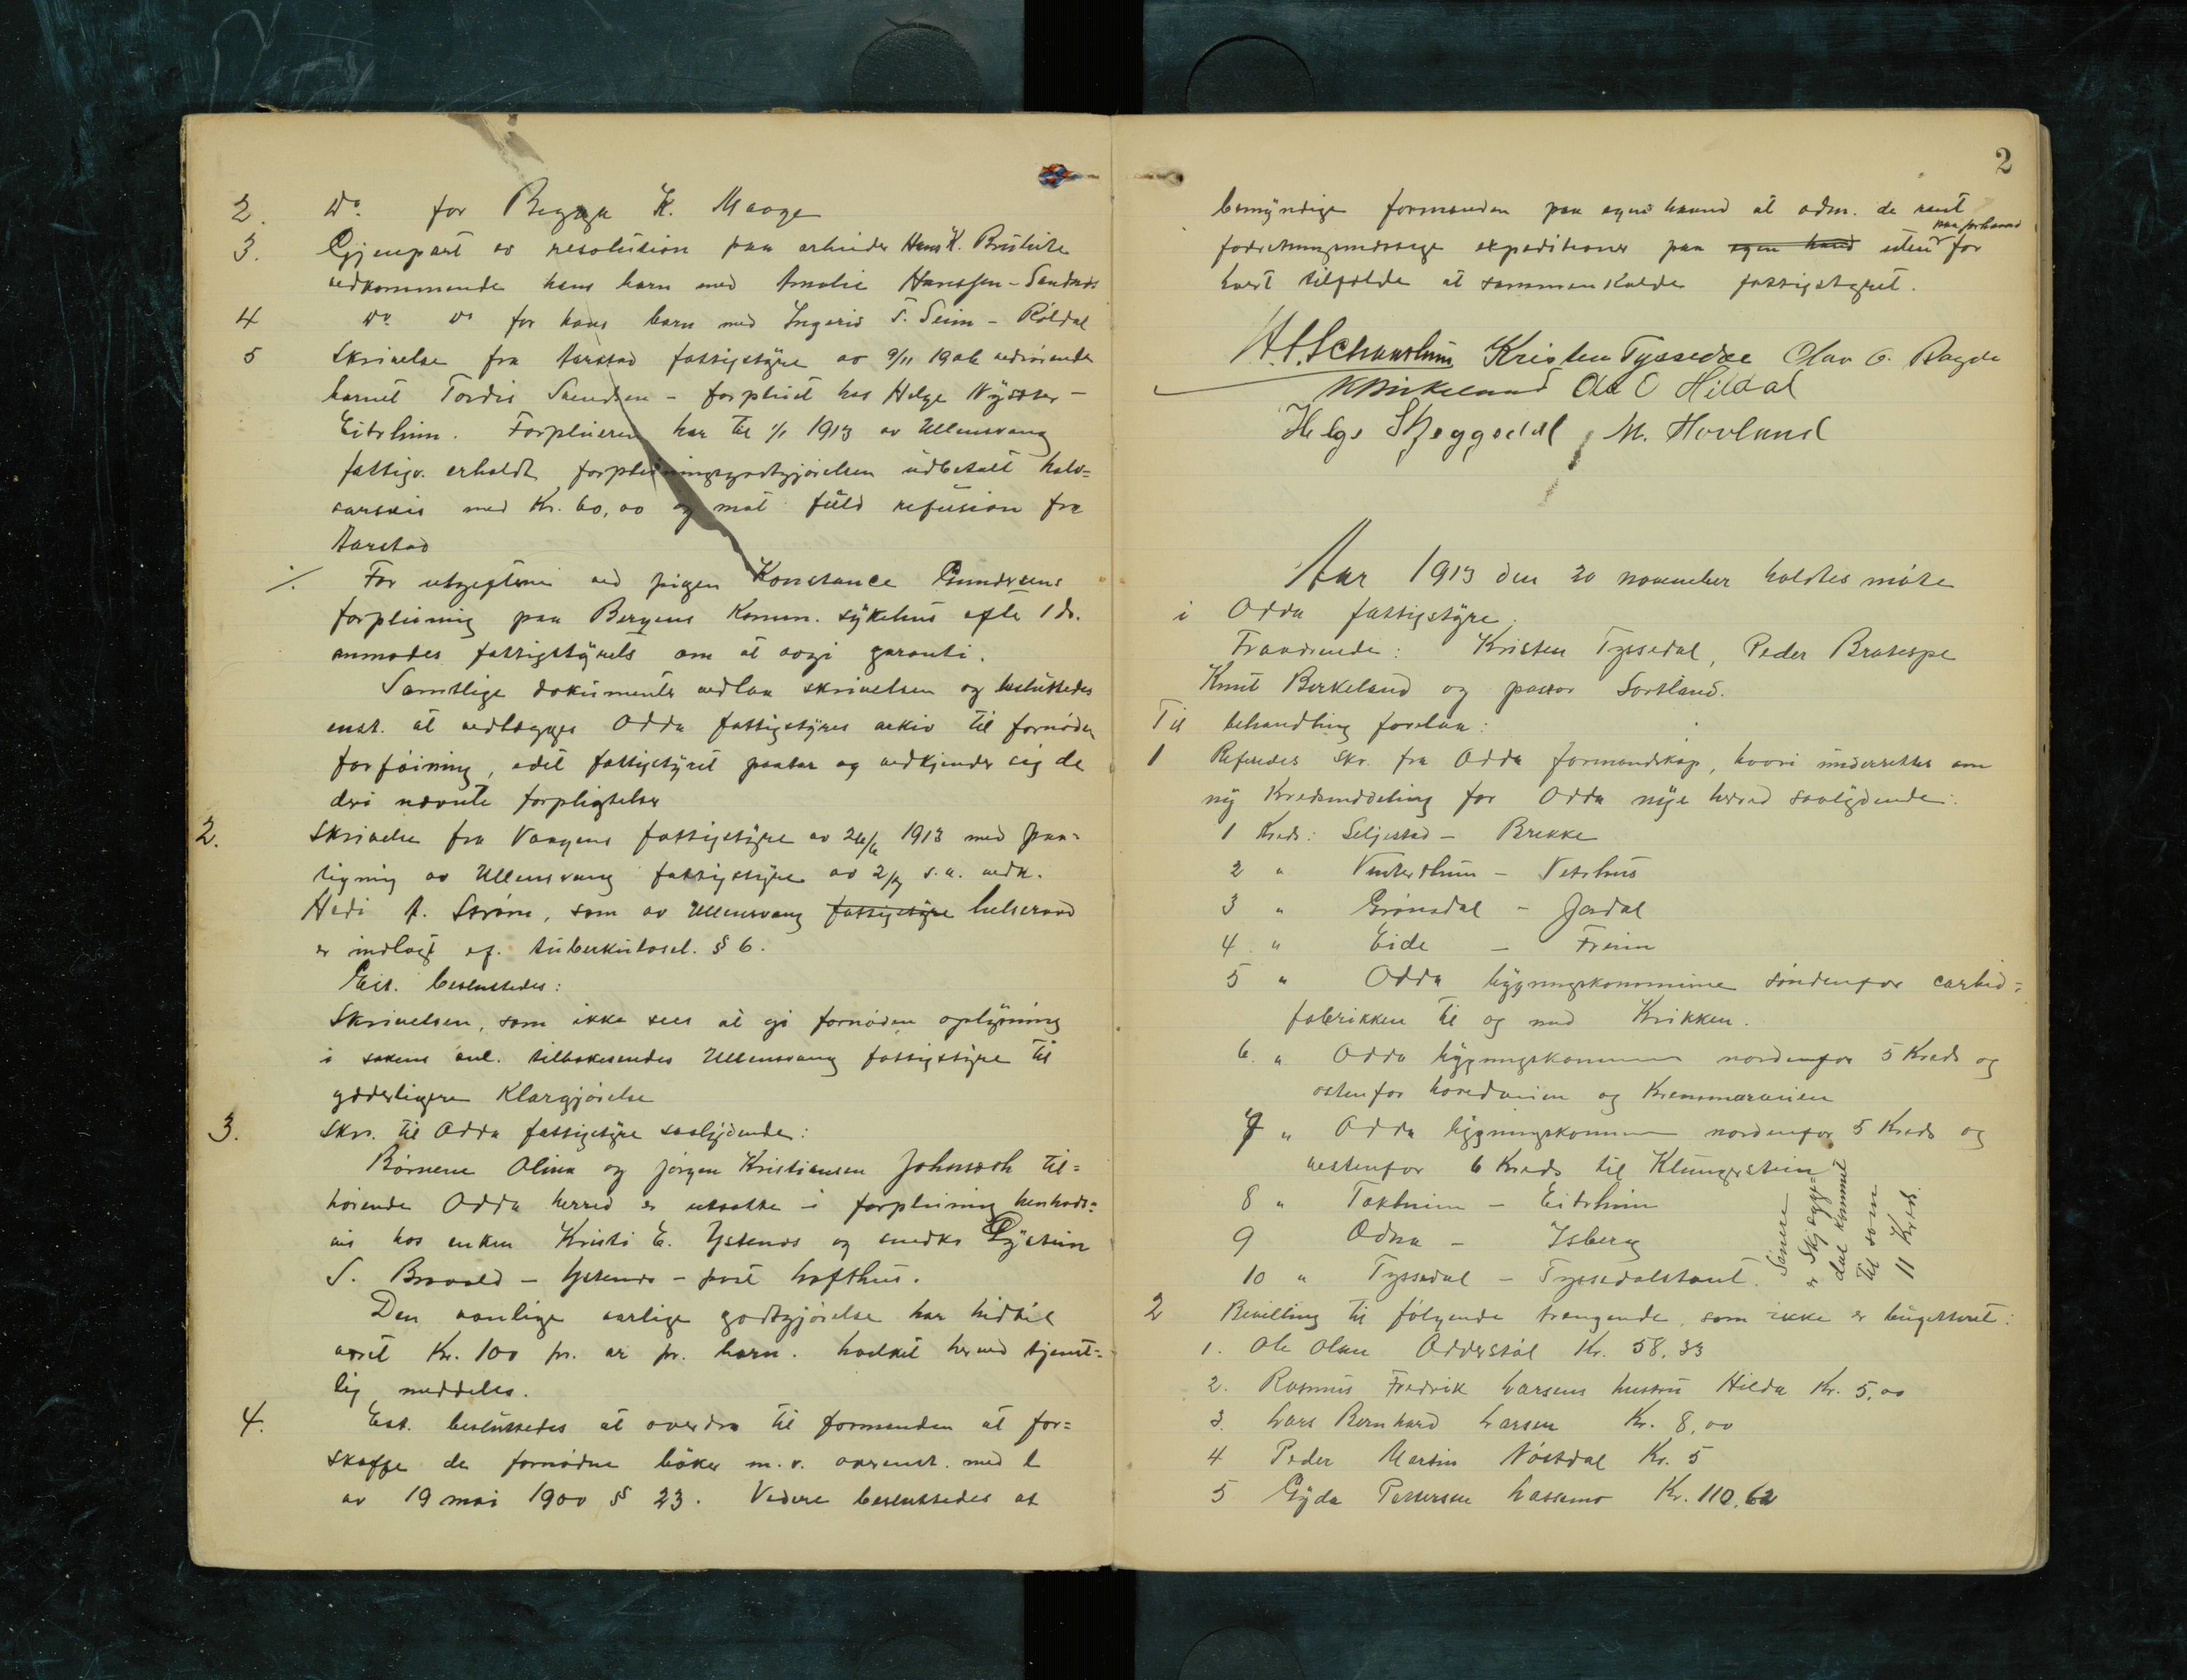 2. Do. for Begga K. Maage
3. Gjenpart av resolution paa arbeider Hans K.
vedkommende hans barn med Amalie Hanssen - Sandnes
4 Do. Do for hans barn med Ingerid T. Seim - Röldal
5 Skrivelse fra Aarstad fattigstyre av 9/11 1906 vedrörende
barnet Tordis Svendsen - forpleiet hos Helge
Eitrheim. Forpleieren har til 1/1 1913 av Ullensvang
fattigv. erholdt forpleiningsgodtgjörelsen utbetalt halv=
aarsvis med Kr. 60,00 og mot fuld refusion fra
Aarstad
./. For utgifterne ved pigen Konstance Gundersens
forpleining paa Bergens Komm. sykehus efter 1 ds.
anmodes fattigstyrets om at avgi garanti.
Samtlige dokumenter vedlaa skrivelsen og besluttedes
enst. at vedlægges Odda fattigstyres arkiv til fornöden
forföining, idet fattigstyret paatar og vedkjender sig de
deri nævnte forpligtelser
2. Skrivelse fra Vaagens fattigstyre av 26/6 1913 med paa=
tegning av Ullensvang fattigstyre av 2/7 s.a. vedk.
A. Ström, som av Ullensvang fattigstyre helseraad
er indlagt ef. tuberkulosel. § 6.
Est. besluttedes:
Skrivelsen, som ikke sees at gi fornöden oplysning
i sakens anl. tilbakesendes Ullensvang fattigstyre til
ydderligere Klargjörelse
3. Skr. til Odda fattigstyre saalydende:
Börnene Olina og Jörgen Kristiansen til=
hörende Odda herred er utsatte i forpleining henholds=
vis hos enken Kristi E. Ystenes og smeden Öystein
S. Bravold - Ystenes - post Lofthus.
Den vanlige aarlige godtgjörelse har hidtil
været Kr. 100 pr. aar pr. barn. hvilket herved tjenst=
lig meddeles.
4. Est. besluttedes at overdra til formanden at for=
skaffe de fornödne böker m.v. overenst. med l
av 19 mai 1900 § 23. Videre besluttedes at
2
bemyndige formanden paa egen haand at adm. de rent
forretningsmæssige expeditioner paa egen haand uten paa forhaand for
hvert tilfælde at sammenkalde fattigstyret.
Kristen Tyssedal Olav O. Ragde
K Birkeland Ola O Hildal
Helge Skjeggedal M. Hovland
Aar 1913 den 20 november holdtes möte
i Odda fattigstyre.
Fraværende: Kristen Tyssedal, Peder Bratespe
Knut Birkeland og pastor Sortland.
Til behandling forelaa:
1 Refereres skr. fra Odda formandskap, hvori underrettes om
ny Kredsinddeling for Odda nye herred saalydende:
1 Kreds: Seljestad - Brekke
2 " Vintertun - Vetrhus
3 " Grönsdal - Jordal
4 " Eide - Freim
5 " Odda bygningskommune söndenfor carbid=
fabrikken til og med Krikken.
6. " Odda bygningskommune nordenfor 5 Kreds og
østenfor hovedveien og Kremmarveien
7 " Odda bygningskommune nordenfor 5 Kreds og
vestenfor 6 Kreds til Klungerstein
8 " Tokheim - Eitrheim
9 Odna - Isberg
10 " Tyssedal - Tyssedalstaul.
Senere
er Skjegge=
dal kommet
til som
11 Kreds.
2 Bevilling til følgende trængende, som ikke er budgetteret:
1. Ole Olsen Kr. 58,33
2. Rasmus Fredrik Larsens hustru Hilda Kr. 5,00
3. Lars Bernhard Larsen Kr. 8,00
4 Peder Martin Nöstdal Kr. 5
5 Gyda Pettersen Lassemo Kr. 110,62